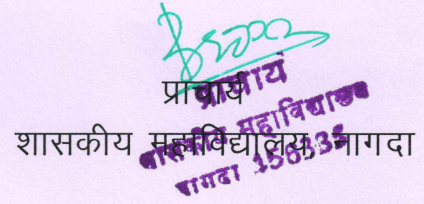 प्राचार्य
शासकीय महाविद्यालय, नागदा
प्राचार्य
शासकीय महाविद्यालय
नागदा 456335